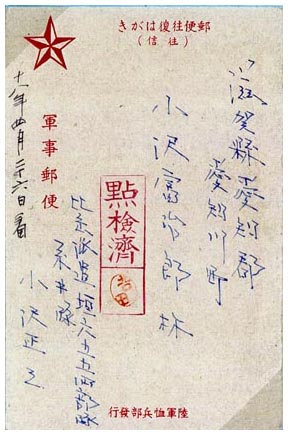 郵便往復はがき
(往信)
滋賀縣愛知郡
愛知川町
小沢富治郎様
點檢濟
比島派遣垣六五五四部隊
小沢正
軍事郵便
年四月二十六日着
陸軍恤兵部發行